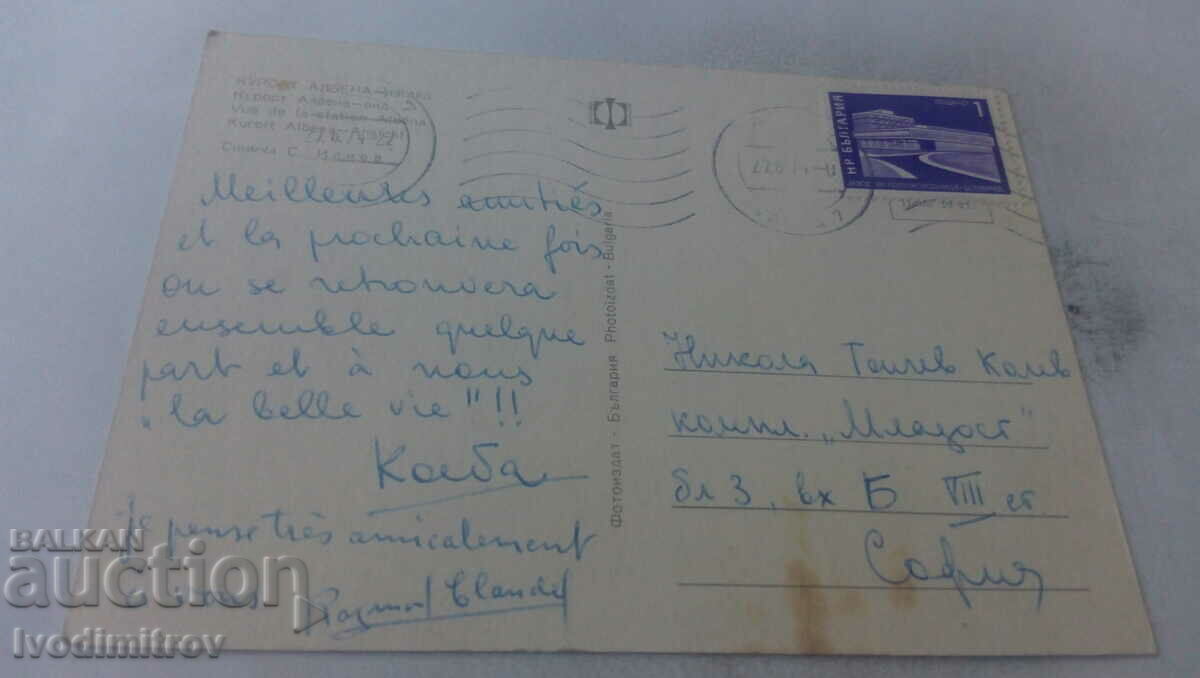 КУРОРТ АЛБЕНА
Курорт Албена
Vue de la station Albena
Kurort Albena Ansicht
Снимка
Meilleures amitiés
et la prochaine fois
on se retrouvera
ensemble quelque
part et à nous
„la belle vie"!!
je pense très amicalement
à vous Claude
Фотоиздат - България Photoizdat - Bulgaria
НР БЪЛГАРИЯ
1
Никола Колев
компл. „Младост"
бл 3, вх Б VIII ет.
София
BALKAN
auction
Ivodimitrov